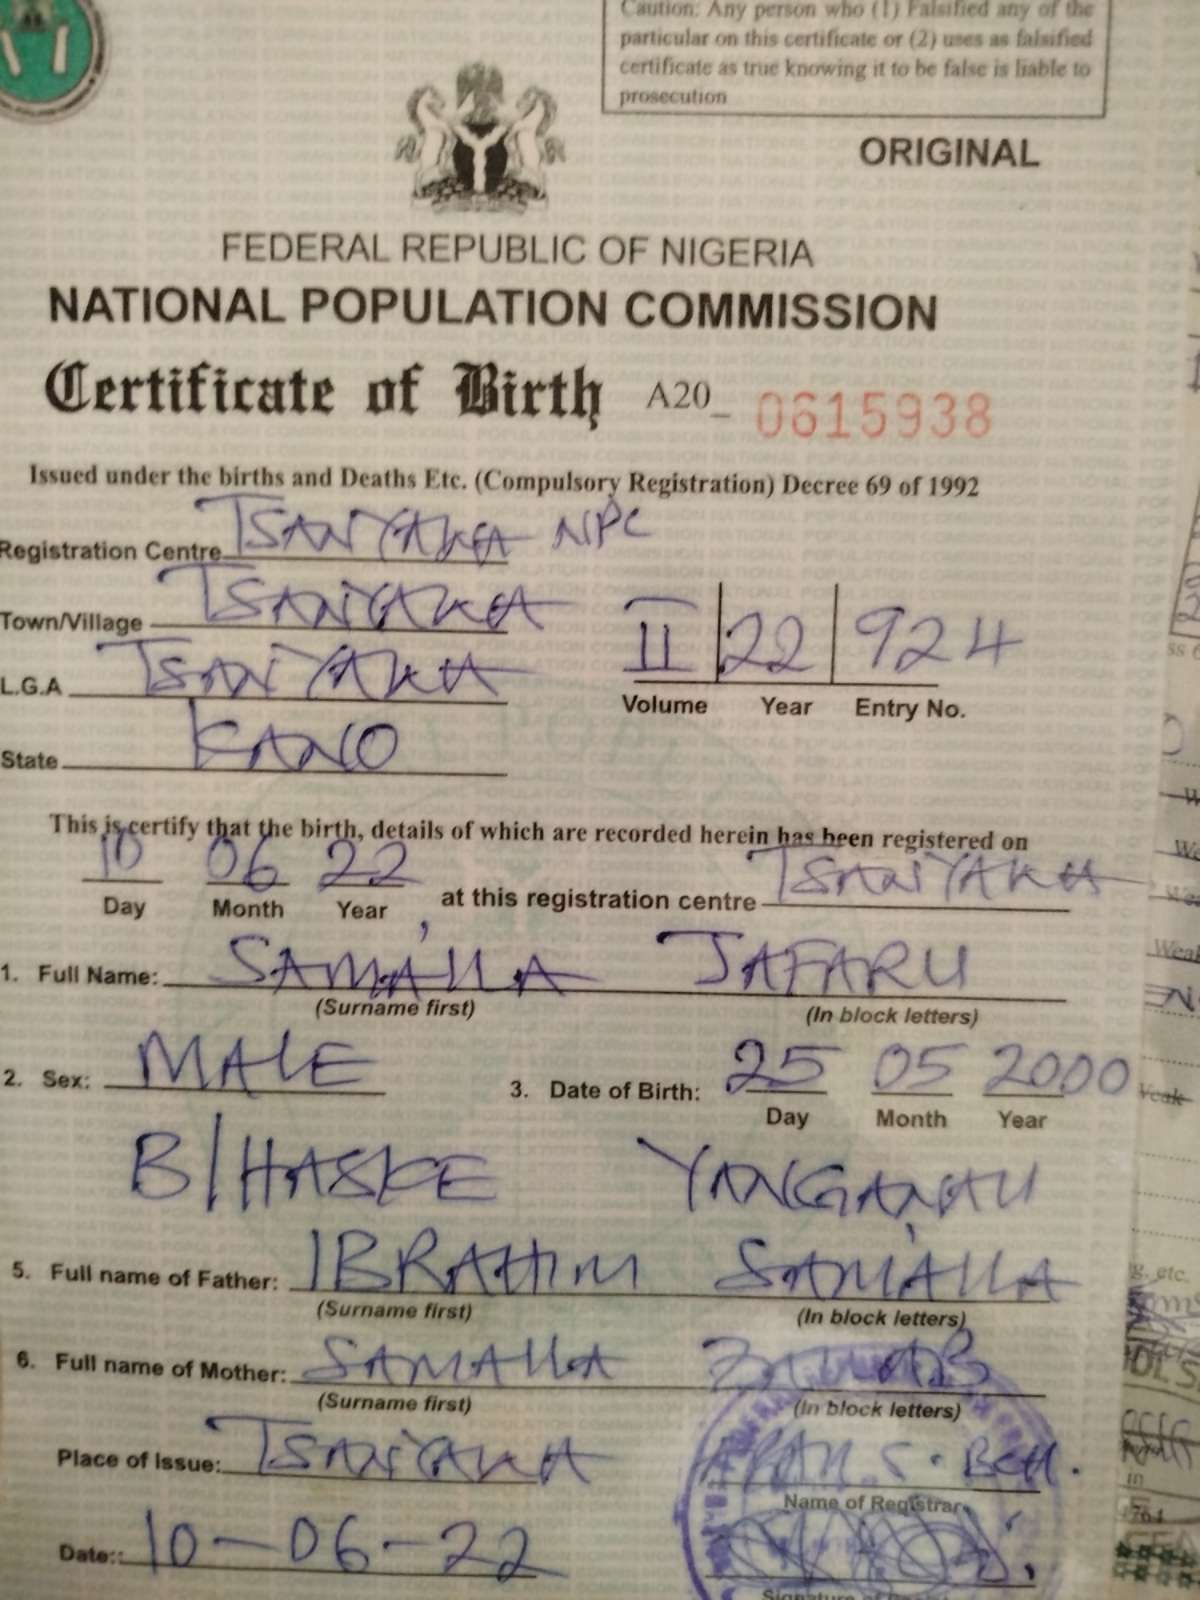 Caution: Any person who (1) Falsified any of the
particular on this certificate or (2) uses as falsified
certificate as true knowing it to be false is liable to
prosecution
ORIGINAL
FEDERAL REPUBLIC OF NIGERIA
NATIONAL POPULATION COMMISSION
Certificate of Birth A20_ 0615938
Issued under the births and Deaths Etc. (Compulsory Registration) Decree 69 of 1992
Registration Centre TSANYAKA NPC
Town/Village TSANYAKA
L.G.A TSANYAKA
II 22 924
Volume Year Entry No.
State KANO
This is certify that the birth, details of which are recorded herein has been registered on
10 06 22 at this registration centre TSANYAKA
Day Month Year
1. Full Name: SAMA'ILA JAFARU
(Surname first) (In block letters)
2. Sex: MALE 3. Date of Birth: 25 05 2000
Day Month Year
B/HASKE
5. Full name of Father: IBRAHIM SAMA'ILA
(Surname first) (In block letters)
6. Full name of Mother: SAMAILA
(Surname first) (In block letters)
Place of Issue: TSANYAKA
Name of Registrar
Date:: 10-06-22